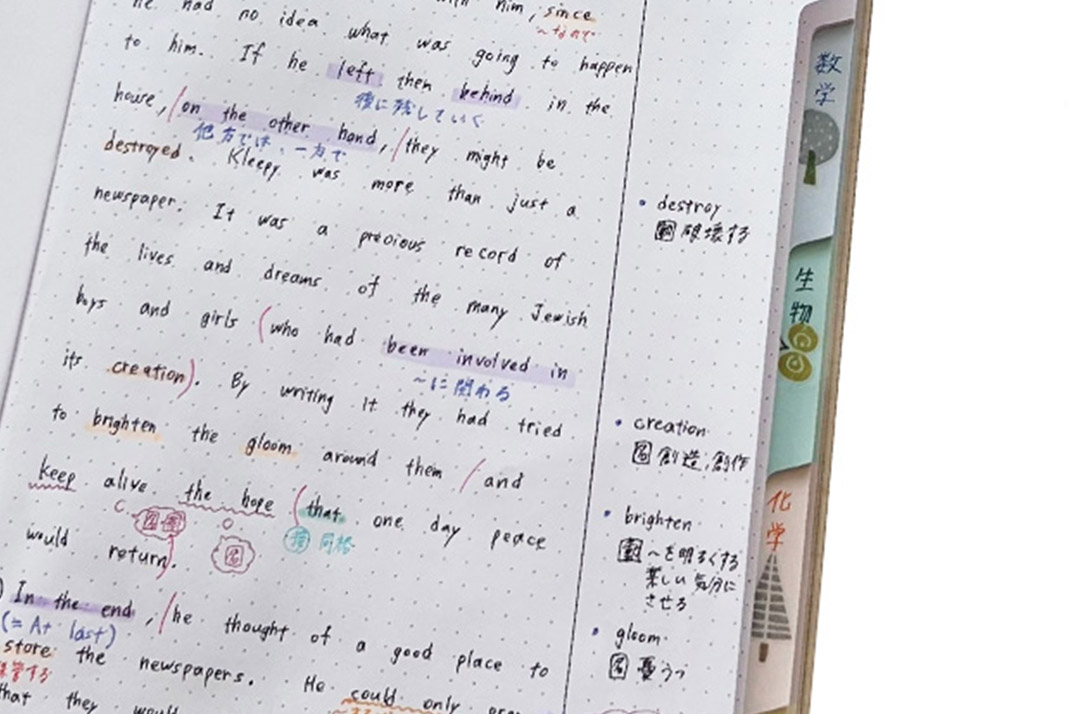 he had no idea what was going to happen
him, since
~なので
to him. If he left them behind in the
後に残していく
house, on the other hand, they might be
他方では、一方で
destroyed. Kleepy was more than just a
newspaper. It was a precious record of
the lives and dreams of the many Jewish
boys and girls (who had been involved in
~に関わる
its creation). By writing it they had tried
to brighten the gloom around them / and
keep alive the hope (that one day peace
C
O
名
接 同格
would return).
In the end, / he thought of a good place to
(= At last)
store the newspapers. He could only
保管する
that they would
・destroy
動 破壊する
・creation
名 創造, 創作
・brighten
動 ~を明るくする
楽しい気分に
させる
・gloom
名 憂うつ
数学
生物
化学